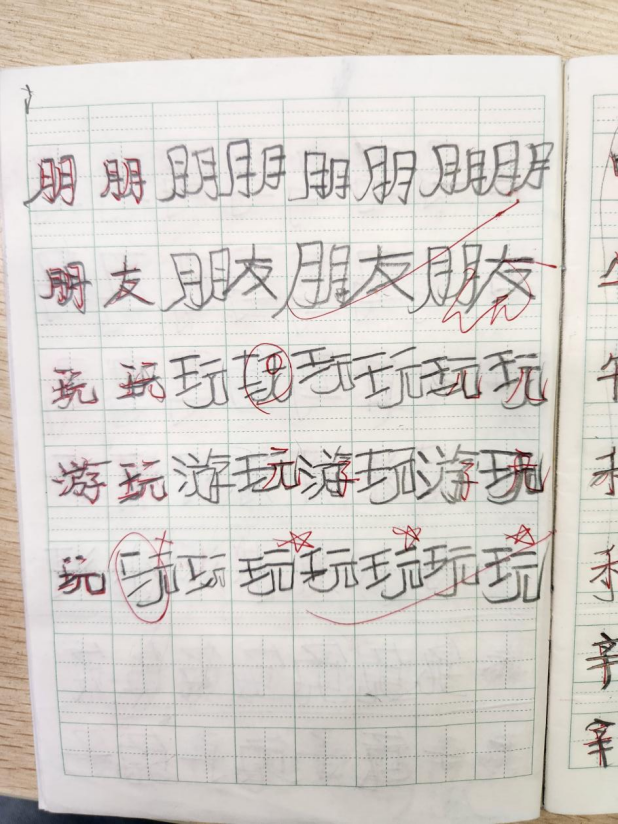 朋朋朋朋朋朋朋朋
朋友朋友朋友朋友
玩玩玩玩玩玩玩玩
游玩游玩游玩游玩
玩玩玩玩玩玩玩玩